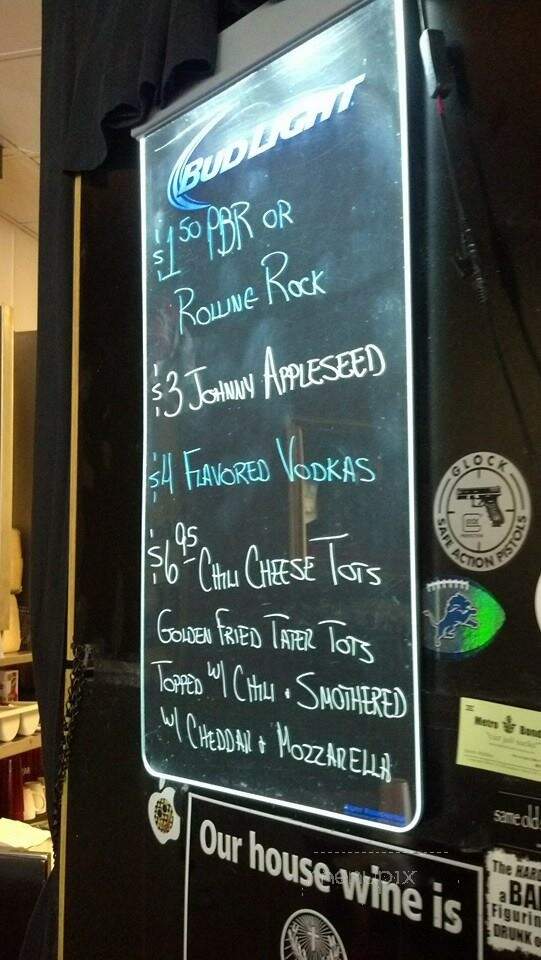 BUD LIGHT
$1.50 PBR OR
ROLLING ROCK
$3 JOHNNY APPLESEED
$4 FLAVORED VODKAS
$6.95 CHILI CHEESE TOTS
GOLDEN FRIED TATER TOTS
TOPPED W/ CHILI & SMOTHERED
W/ CHEDDAR & MOZZARELLA
GLOCK
SAFE ACTION PISTOLS
Metro Bond
same old
Our house wine is
menupix
The HARD
a BA
Figurin
DRUNK o